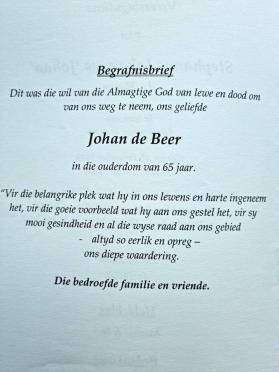 Begrafnisbrief
Dit was die wil van die Almagtige God van lewe en dood om
van ons weg te neem, ons geliefde
Johan de Beer
in die ouderdom van 65 jaar.
“Vir die belangrike plek wat hy in ons lewens en harte ingeneem
het, vir die goeie voorbeeld wat hy aan ons gestel het, vir sy
mooi gesindheid en al die wyse raad aan ons gebied
- altyd so eerlik en opreg –
ons diepe waardering.
Die bedroefde familie en vriende.